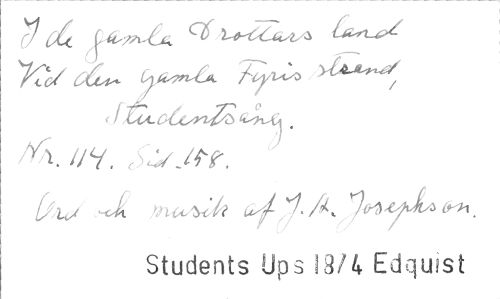 I de gamla Drottars land
Vid den gamla Fyris strand,
Studentsång.
Nr. 114. Sid. 158.
Ord och musik af J. A. Josephson.
Students Ups 18/4 Edquist